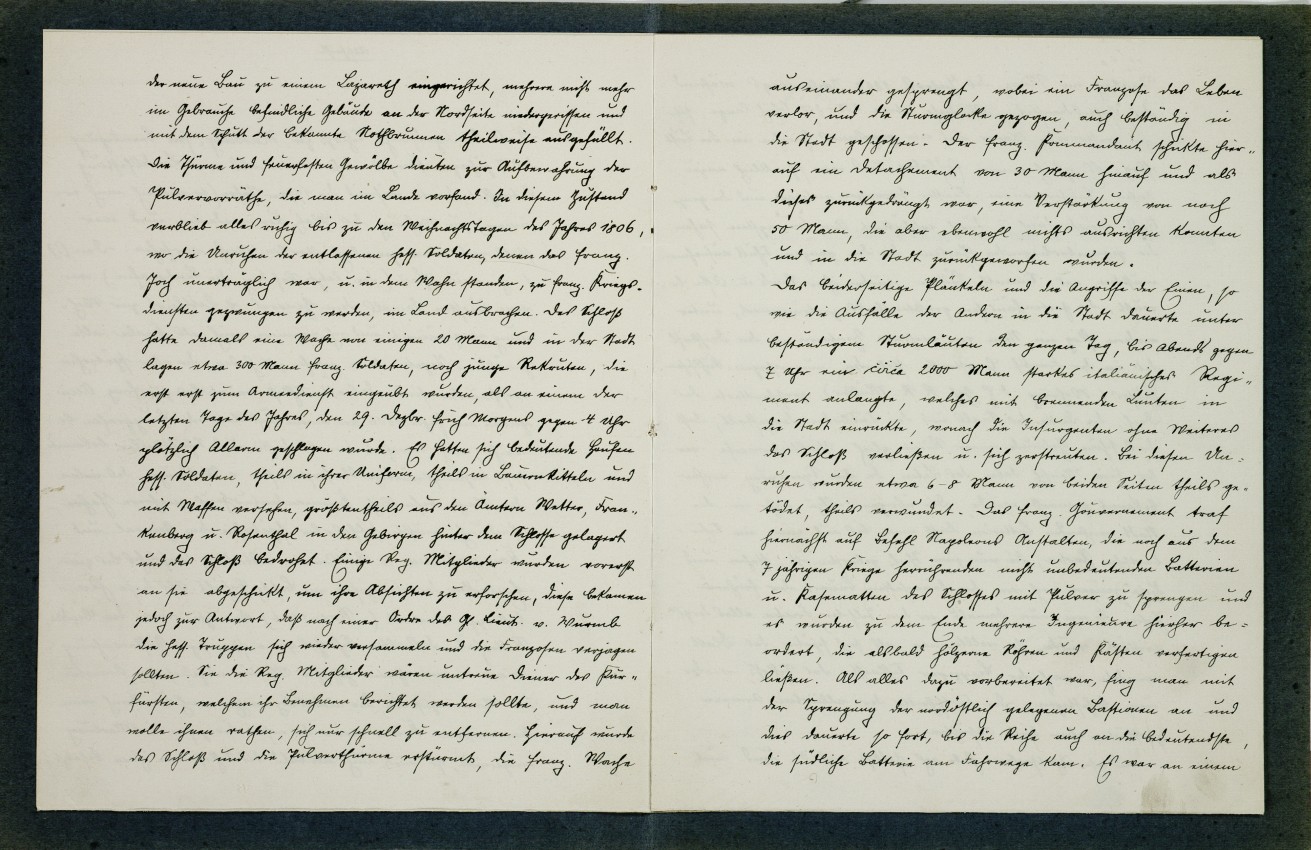 der neue Bau zu einem Lazareth eingerichtet, mehrere nicht mehr
im Gebrauche befindliche Gebäude an der Nordseite niedergerissen und
mit dem Schutt der bekannte Rothbrunnen theilweise ausgefüllt.
Die Thürme und feuerfesten Gewölbe dienten zur Aufbewahrung der
Pulvervorräthe, die man im Lande vorfand. In diesem Zustand
verblieb alles ruhig bis zu den Weihnachtstagen des Jahres 1806,
wo die Unruhen der entlassenen hess. Soldaten, denen das franz.
Joch unerträglich war, u. in dem Wahn standen, zu franz. Kriegs-
diensten gezwungen zu werden, im Land ausbrachen. Das Schloß
hatte damals eine Wache von einigen 20 Mann und in der Stadt
lagen etwa 300 Mann franz. Soldaten, noch junge Rekruten, die
erst erst zum Armeedienst eingeübt wurden, als an einem der
letzten Tage des Jahres, den 29. Dezbr. früh Morgens gegen 4 Uhr
plötzlich Allarm geschlagen wurde. Es hatten sich bedeutende Haufen
hess. Soldaten, theils in ihrer Uniform, theils in Bauernkitteln und
mit Waffen versehen, größtentheils aus den Ämtern Wetter, Fran-
kenberg u. Rosenthal in den Gebirgen hinter dem Schlosse gelagert
und das Schloß bedrohet. Einige Reg. Mitglieder wurden vorerst
an sie abgeschickt, um ihre Absichten zu erforschen, diese bekamen
jedoch zur Antwort, daß nach einer Ordre des Gl. Lieut. v. Wurmb
die hess. Truppen sich wieder versammeln und die Franzosen verjagen
sollten. Sie die Reg. Mitglieder wären untreue Diener des Kur-
fürsten, welchem ihr Benehmen berichtet werden sollte, und man
wolle ihnen rathen, sich nur schnell zu entfernen. Hierauf wurde
das Schloß und die Pulverthürme erstürmt, die franz. Wache
auseinander gesprengt, wobei ein Franzose das Leben
verlor, und die Sturmglocke gezogen, auch beständig in
die Stadt geschossen. Der franz. Kommandant schickte hier-
auf ein Detachement von 30 Mann hinauf und als
dieses zurückgedrängt war, eine Verstärkung von noch
50 Mann, die aber ebenwohl nichts ausrichten konnten
und in die Stadt zurückgeworfen wurden.
Das beiderseitige Plänkeln und die Angriffe der Einen, so
wie die Ausfälle der Andern in die Stadt dauerte unter
beständigem Sturmläuten den ganzen Tag, bis Abends gegen
7 Uhr ein circa 2000 Mann starkes italiänisches Regi-
ment anlangte, welches mit brennenden Lunten in
die Stadt einrückte, wonach die Insurgenten ohne Weiteres
das Schloß verließen u. sich zerstreuten. Bei diesen Un-
ruhen wurden etwa 6-8 Mann von beiden Seiten theils ge-
tödet, theils verwundet. Das franz. Gouvernement traf
hiernächst auf Befehl Napoleons Anstalten, die noch aus dem
7 jährigen Kriege herrührenden nicht unbedeutenden Batterien
u. Kasematten des Schlosses mit Pulver zu sprengen und
es wurden zu dem Ende mehrere Ingenieure hierher be-
ordert, die alsbald hölzerne Röhren und Kästen verfertigen
ließen. Als alles dazu vorbereitet war, fing man mit
der Sprengung der nordöstlich gelegenen Bastionen an und
dies dauerte so fort, bis die Reihe auch an die bedeutendste,
die südliche Batterie am Fahrwege kam. Es war an einem